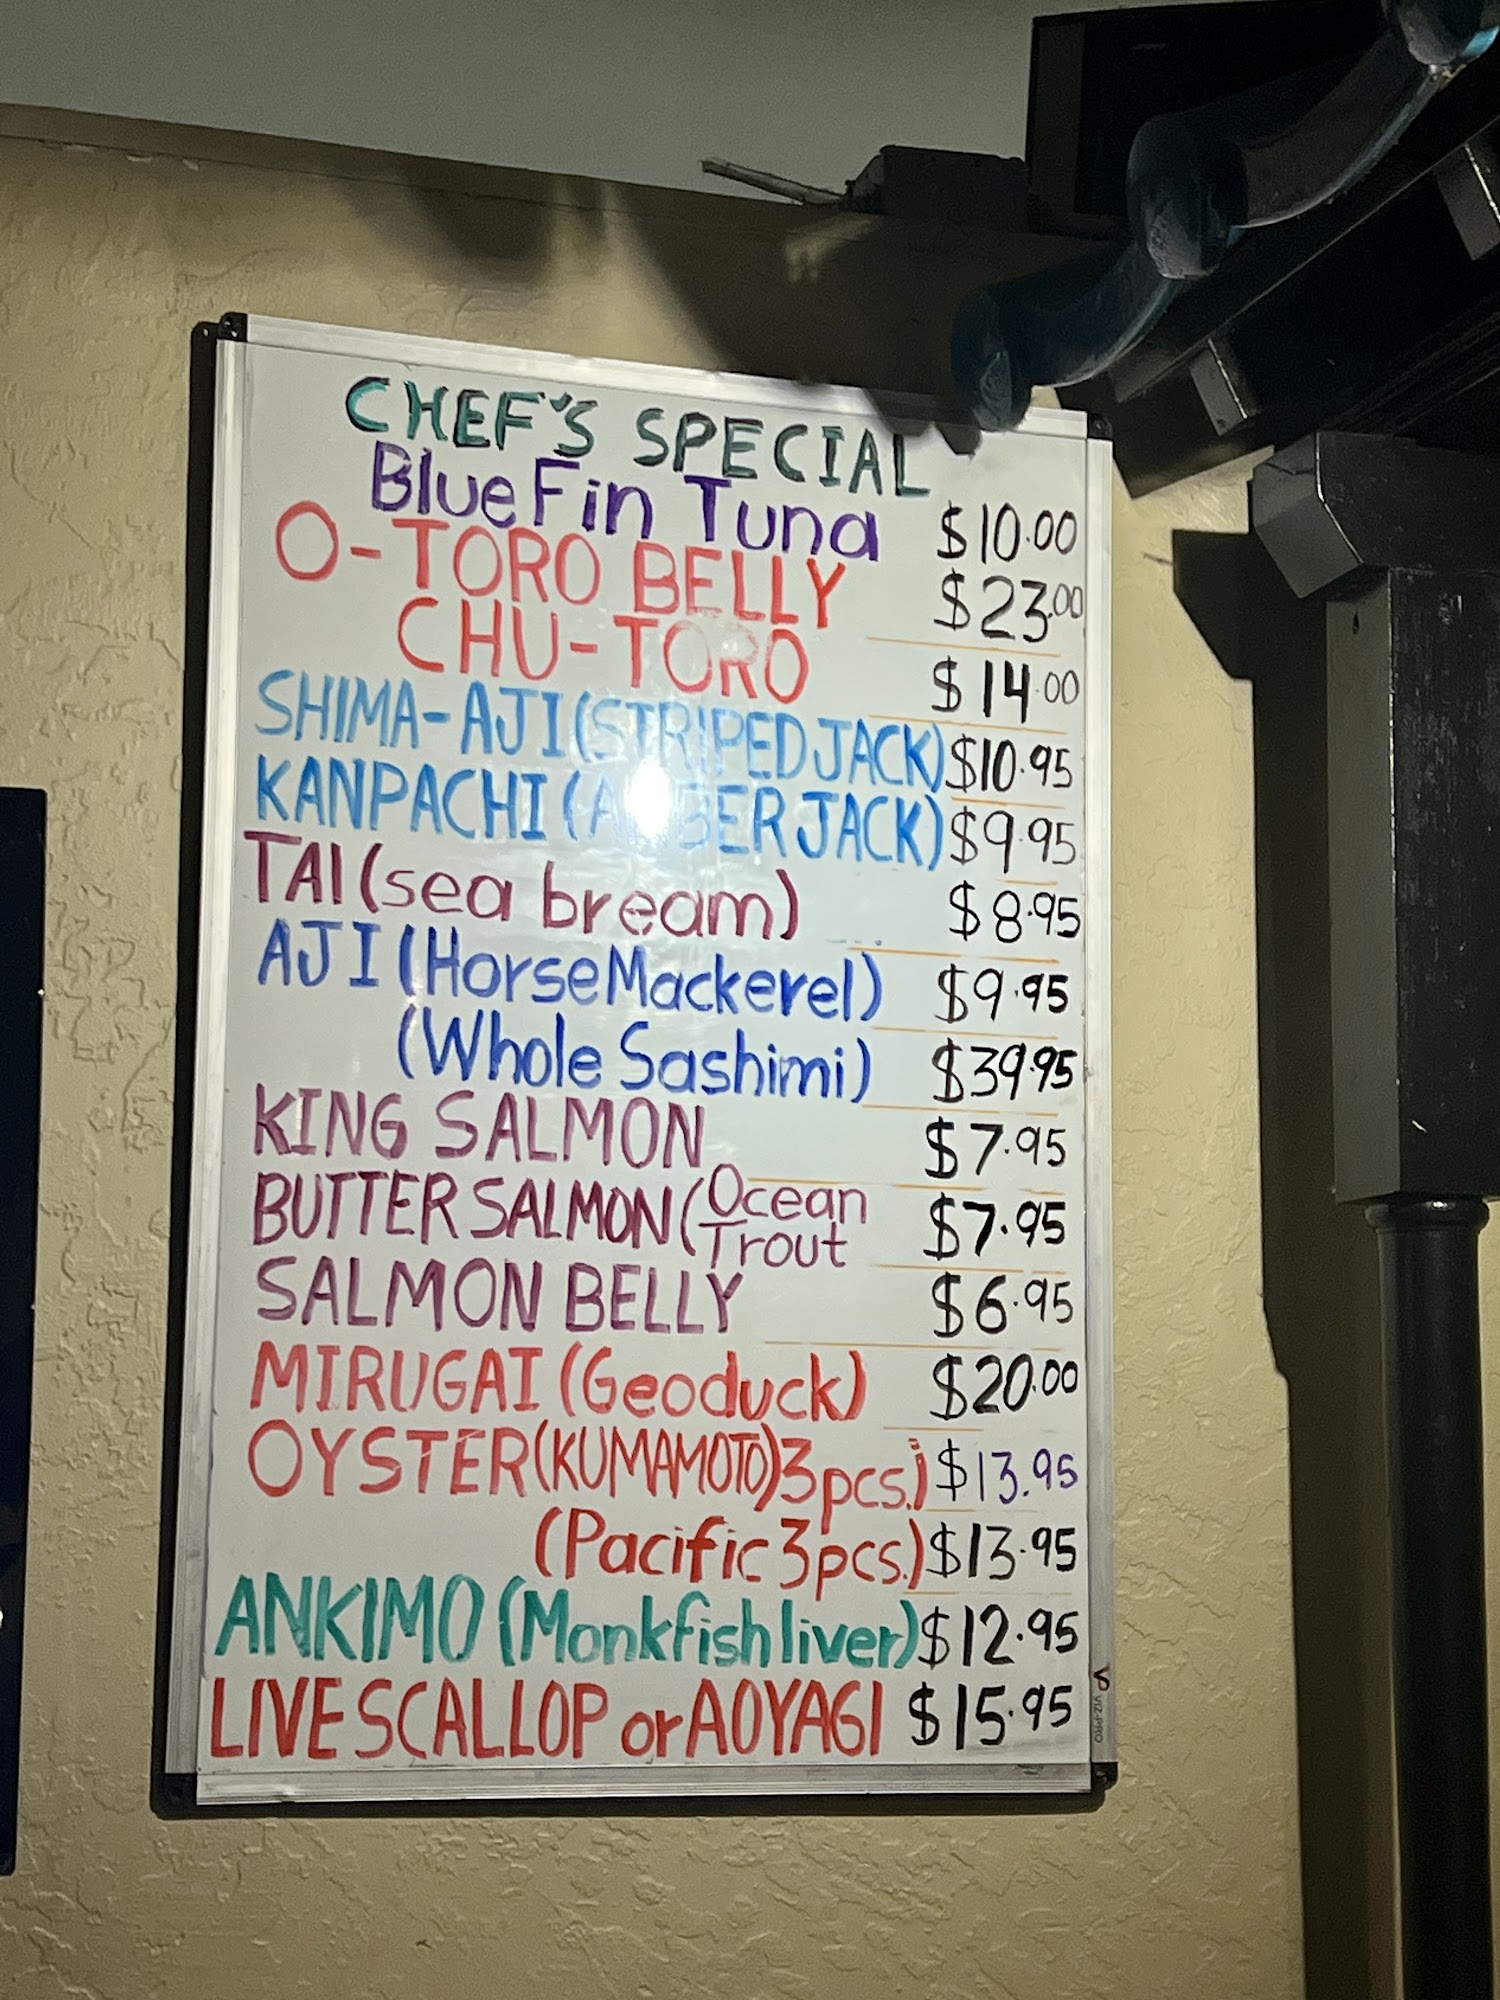 CHEF'S SPECIAL
Blue Fin Tuna $10.00
O-TORO BELLY $23.00
CHU-TORO $14.00
SHIMA-AJI (STRIPED JACK) $10.95
KANPACHI (AMBER JACK) $9.95
TAI (sea bream) $8.95
AJI (Horse Mackerel) $9.95
(Whole Sashimi) $39.95
KING SALMON $7.95
BUTTER SALMON (Ocean Trout $7.95
SALMON BELLY $6.95
MIRUGAI (Geoduck) $20.00
OYSTER (KUMAMOTO) 3pcs.) $13.95
(Pacific 3pcs.) $13.95
ANKIMO (Monkfish liver) $12.95
LIVE SCALLOP or AOYAGI $15.95
VIZ-PRO